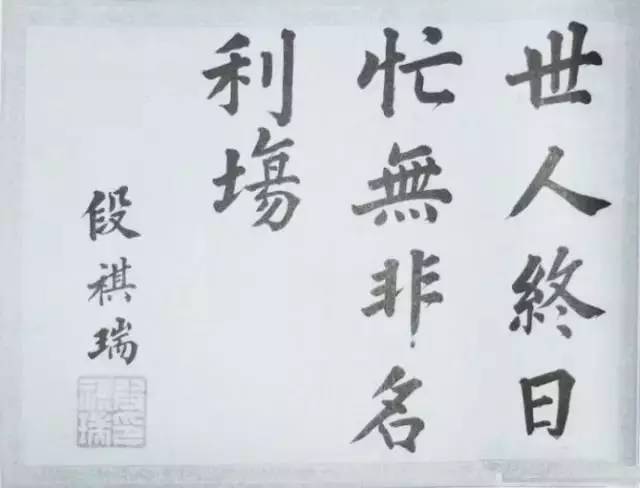 世人終日
忙無非名
利塲
段祺瑞